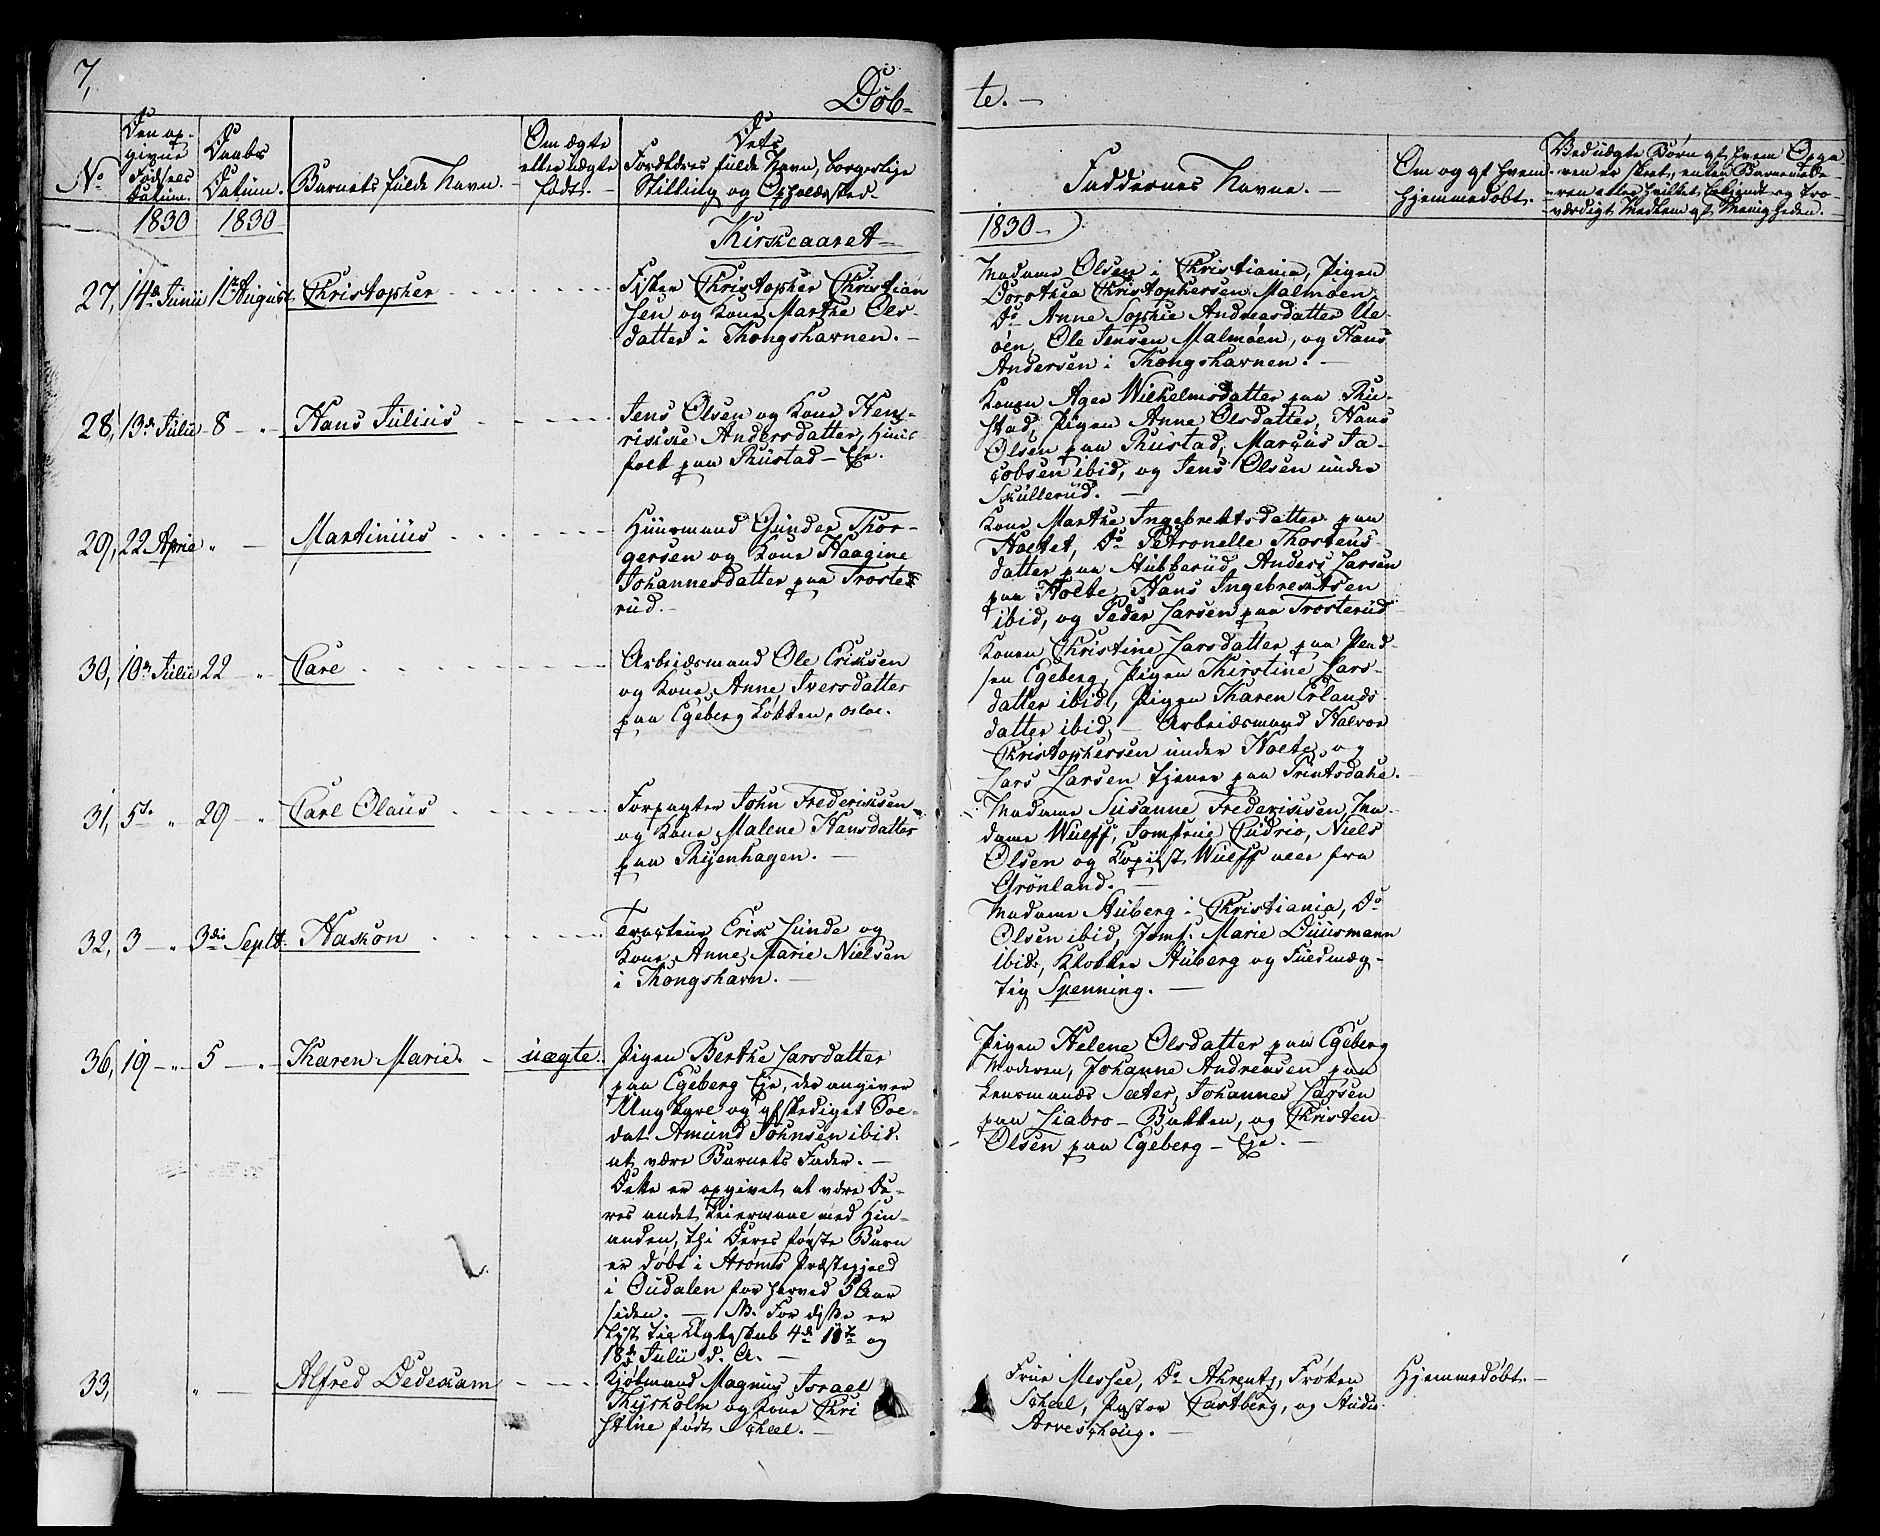 7,
Døb-
te. –
No
Den op-
givne
Fødsels
Datum.
Daabs
Datum.
Barnets fulde Navn.
Om ægte
eller uægte
født.
Dets
Forældres fulde Navn, borgerlige
Stilling og Opholdssted.
Faddernes Navne.
Om og af hvem
hjemmedøbt.
Ved uægte Børn af hvem Opga-
ven er skeet, enten Barnemode-
ren eller hvilket bekjendt og tro-
værdigt Medlem af Menigheden.
1830
1830
Kirkeaaret
1830
27, 14de Junii 1ste August. Christopher
Fisker Christopher Christian
sen og Kone Marthe Ols-
datter i Kongshavnen. –
Madame Olsen i Christiania, Pigen
Dorothea Christophersen Malmøen,
Do Anne Sophie Andreasdatter Ul-
øen, Ole Jensen Malmøen, og Hans
Andersen i Kongshavnen. –
28, 13de Julii 8 –„– Hans Julius
Jens Olsen og Kone Hen-
rikke Andersdatter, Huus-
folk paa Rustad – Eje.
Konen Ager Wilhelmsdatter paa Ru-
stad, Pigen Anne Olsdatter, Hans
Olsen paa Rustad, Marcus Ja-
cobsen ibid, og Jens Olsen under
Skullerud. –
29, 22 April „ – Martinius
Huusmand Gunder Thor-
gersen og Kone Haagine
Johannesdatter paa Troste-
rud. –
Kone Marthe Ingebrektsdatter paa
Holtet, Do Petronelle Thostens-
datter paa Stubberud, Anders Larsen
paa Holte, Hans Ingebrektsen
ibid, og Peder Larsen paa Trosterud
30, 10de Julii 22 – „ Carl
Arbeidsmand Ole Eriksen
og Kone Anne Iversdatter
paa Egeberg Løkken, Osloe.
Konen Christine Larsdatter paa
Egeberg, Pigen Kirstine Lars-
datter ibid, Pigen Karen Erlands-
datter ibid, – Arbeidsmand Halvor
Christophersen under Holte, og
Lars Larsen tjener paa
31, 5te „ 29 – „ Carl Olaus
Forpagter John Frederiksen
og Kone Malene Hansdatter
paa Ryenhagen. –
Madame Susanne Frederiksen, Ma-
dame Wulff, Jomfrue Cudrio, Niels
Olsen og Kopiist Wulff alle fra
Grönland. –
32, 3 – „ 3die Septbr. Haskon
Tracteur Erik Lunde og
Kone Anne Marie Nielsen
i Kongshavn. –
Madame Stuberg i Christiania, Do
Olsen ibid, Jomf. Marie Duusmann
ibid, Klokker Stuberg og Fuldmæg-
tig Spenning. –
36, 19 –„ 5 – „ Karen Marie. – uægte.
Pigen Berthe Larsdatter
paa Egeberg Eje, der angiver
Ungkarl og afskediget Sol-
dat Amund Johnsen ibid.
at være Barnets Fader. –
Dette er opgivet at være De-
res andet Leiermaal med Hin-
anden, thi Deres første Barn
er døbt i Strøms Præstegjeld
i Oudalen for herved 5 Aar
siden. – NB. For disse er
lyst til Ægteskab 4de 11te og
18de Julii d. A. –
Pigen Helene Olsdatter paa Egeberg
Moderen, Johanne Andreasen paa
Lensmands Sæter, Johannes Larsen
paa Liabro – Bakken, og Christen
Olsen paa Egeberg – Eje. –
33, „ – Alfred Dedekam
Kjøbmand Magnus Israel
Thyrholm og Kone Chri
stine født Scheel. –
Frue Messel, Do Ahrentz, Frøken
Scheel, Pastor Castberg, og Stud.
Arveschoug. –
Hjemmedøbt. –